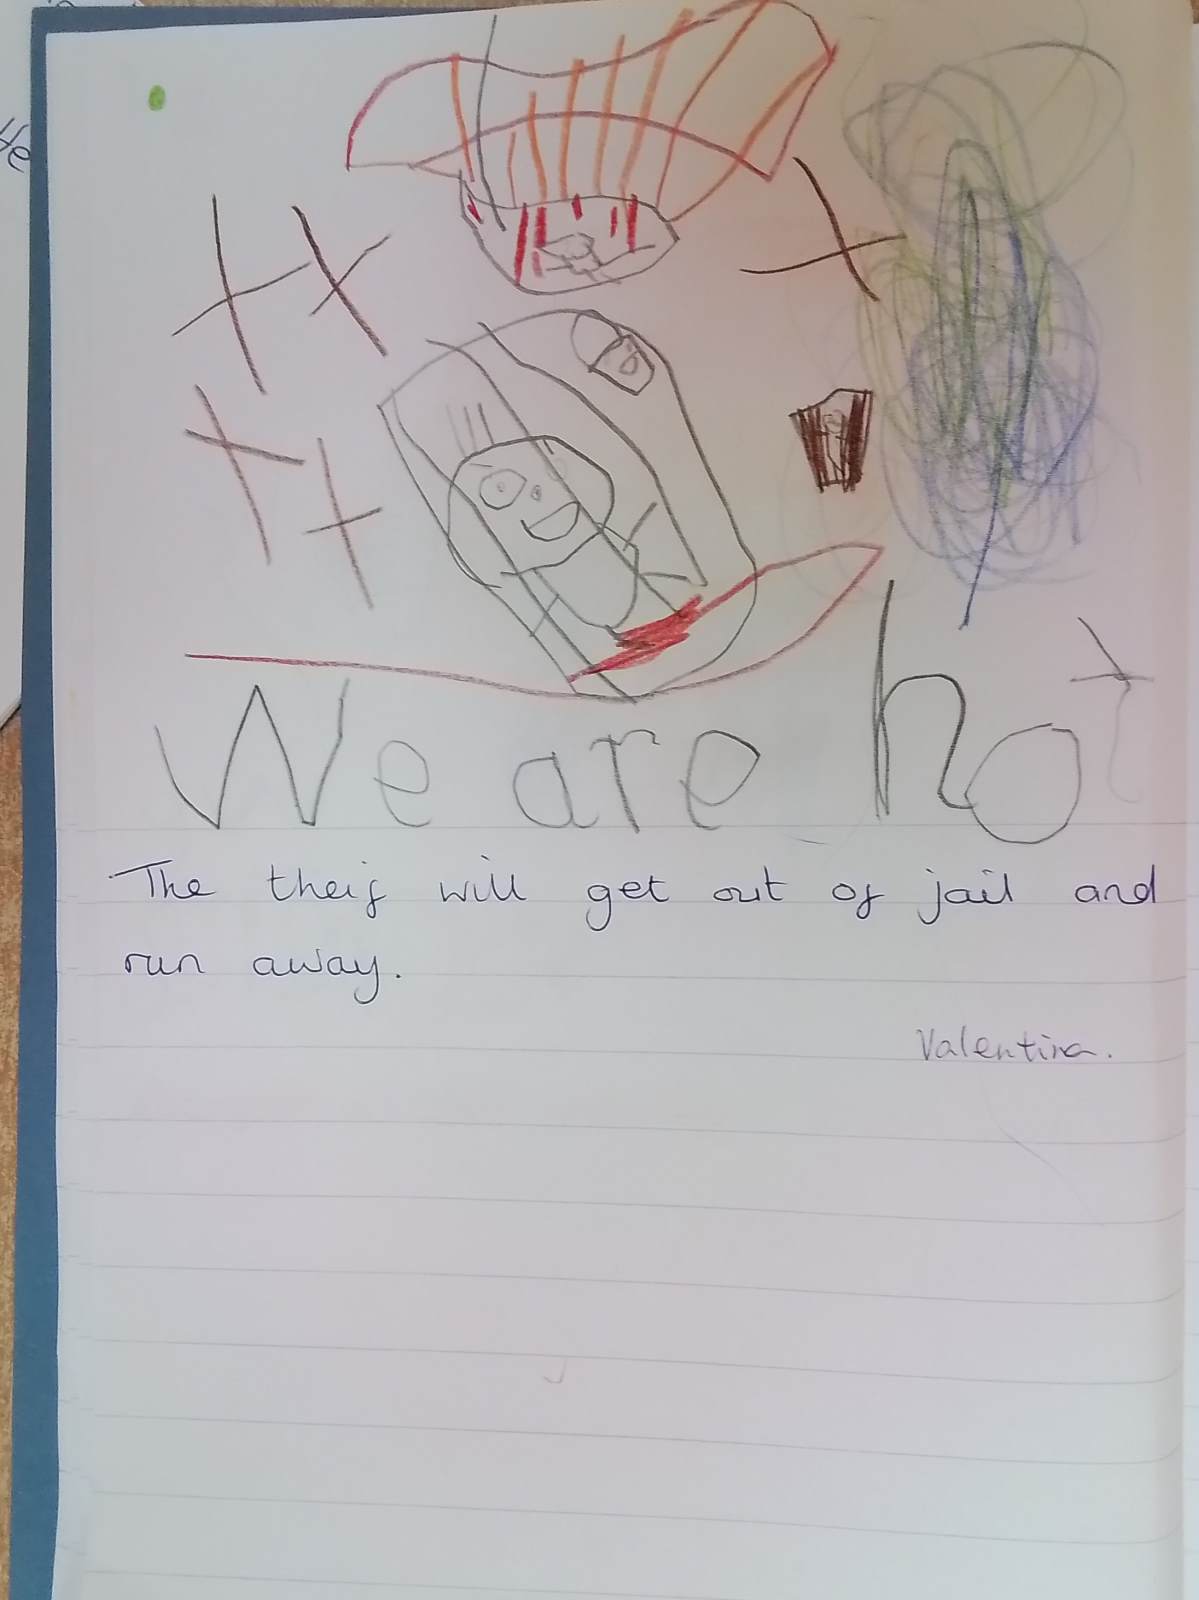 He
We are hot
The theif will get out of jail and
run away.
Valentina.